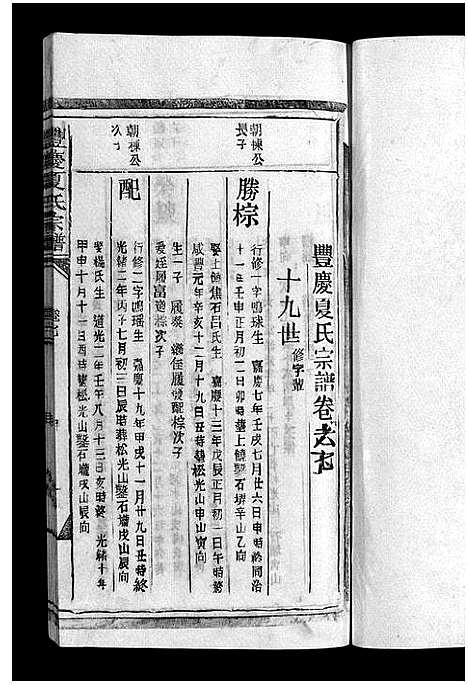 豐慶夏氏宗譜卷之
十九世 修字輩
朝棟公
長子
勝棕
行修一字鳴球生 嘉慶七年壬戌七月廿六日申時終同治
十一年壬申正月初二日卯時葬上饒鑿石塝辛山乙向
娶土 焦石呂氏生 嘉慶十三年戊辰正月初三日午時終
咸豐元年辛亥十二月十九日丑時葬松光山申山寅向
生一子 履泰 繼侄履 配棕次子
愛廷履富 棕次子
朝棟公
次子
配
行修二字鳴瑶生 嘉慶十九年甲戌十一月廿九日丑時終
光緒二年丙子七月初三日辰時葬松光山鑿石塝戌山辰向
娶楊氏生 道光二年壬午八月十三日亥時終 光緒十年
甲申十月十二日酉時葬松光山鑿石塝戌山辰向
豐慶夏氏宗譜